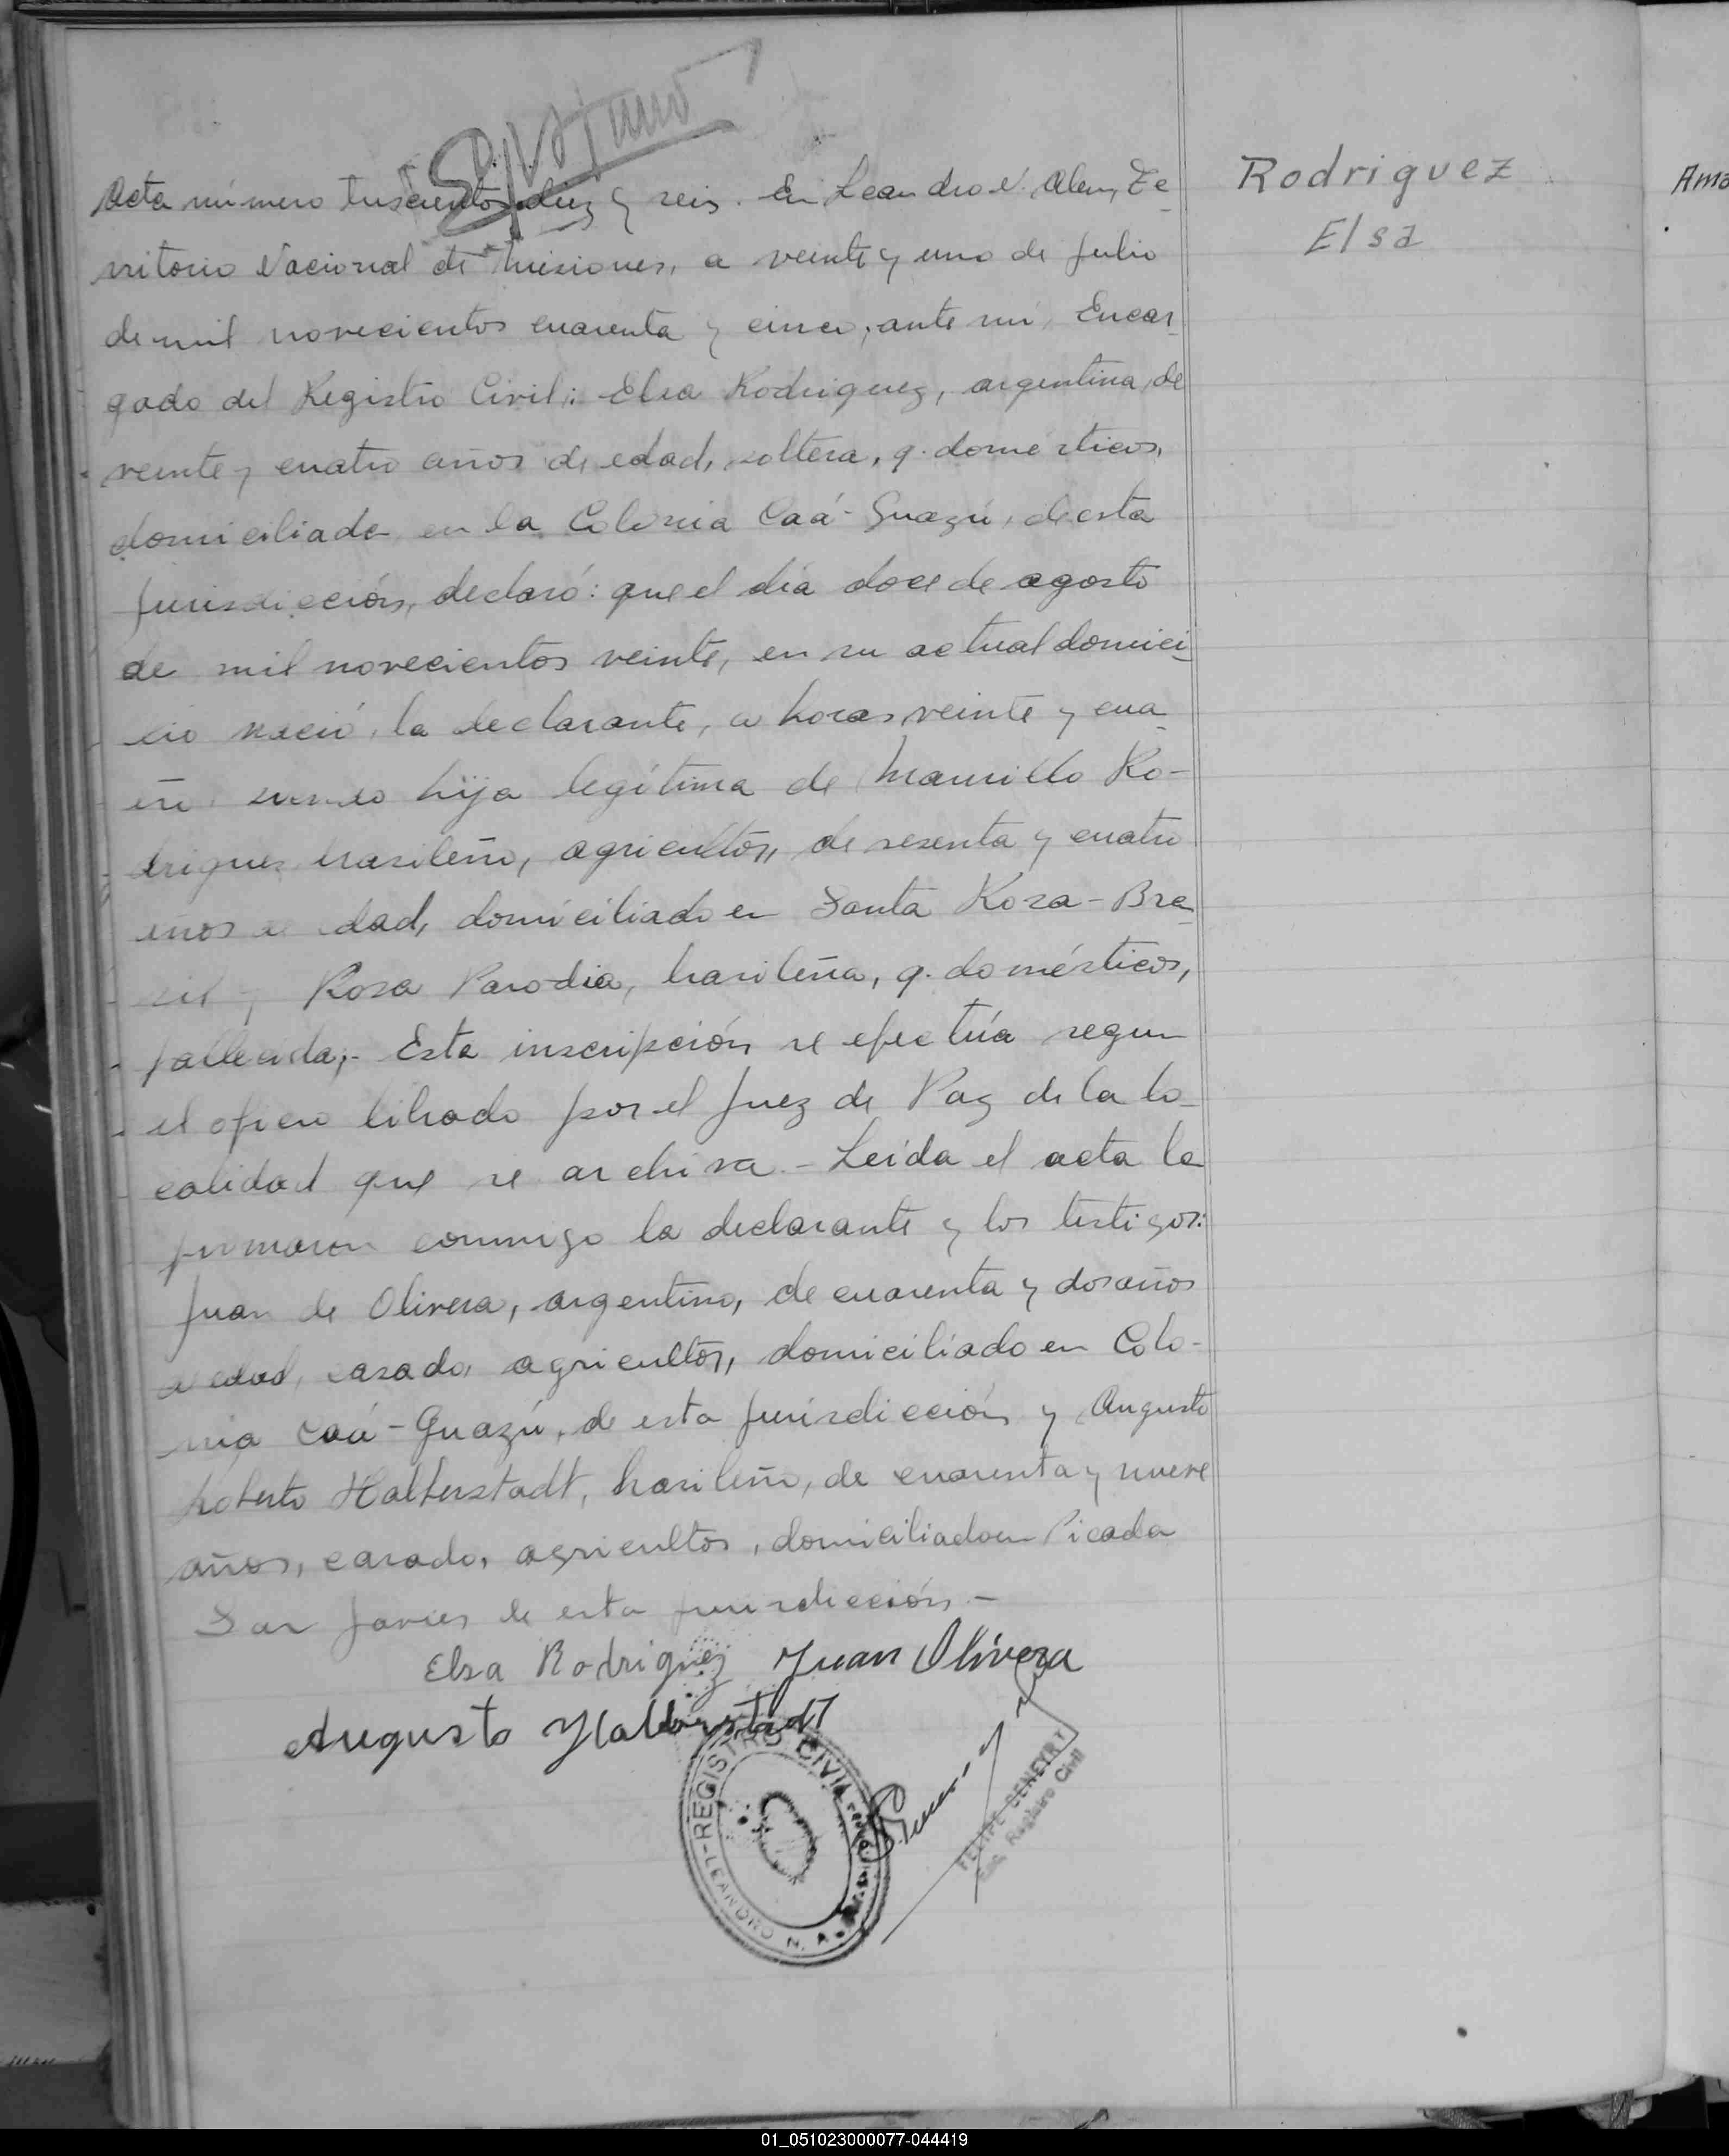 Acta número trescientos diez y seis. En Leandro N. Alem, Te-
rritorio Nacional de Misiones, a veinte y uno de Julio
de mil novecientos cuarenta y cinco, ante mí, Encar-
gado del Registro Civil: Elsa Rodriguez, argentina, de
veinte y cuatro años de edad, soltera, q. domésticos,
domiciliada en la Colonia Caá-Guazú, de esta
Jurisdicción, declaró: que el día doce de agosto
de mil novecientos veinte, en su actual domici-
lio nació, la declarante, a horas veinte y cua-
tro siendo hija legítima de Maurillo Ro-
driguez brasileño, agricultor, de sesenta y cuatro
años de edad, domiciliado en Santa Rosa-Bra-
sil y Rosa Parodia, brasileña, q. domésticos,
fallecida,- Esta inscripción se efectúa segun
el oficio librado por el Juez de Paz de la lo-
calidad que se archiva.- Leída el acta la
firmaron conmigo la declarante y los testigos:
Juan de Olivera, argentino, de cuarenta y dos años
de edad, casado, agricultor, domiciliado en Colo-
nia Caá-Guazú, de esta Jurisdicción y Augusto
Roberto Halberstadt, brasileño, de cuarenta y nueve
años, casado, agricultor, domiciliado en Picada
San Javier de esta jurisdicción.-
Elsa Rodriguez Juan Olivera
Augusto Halberstadt
REGISTRO CIVIL
LEANDRO N. A
FELIPE BENEYRT
Enc. Registro Civil
Rodriguez
Elsa
Ama
01_051023000077-044419